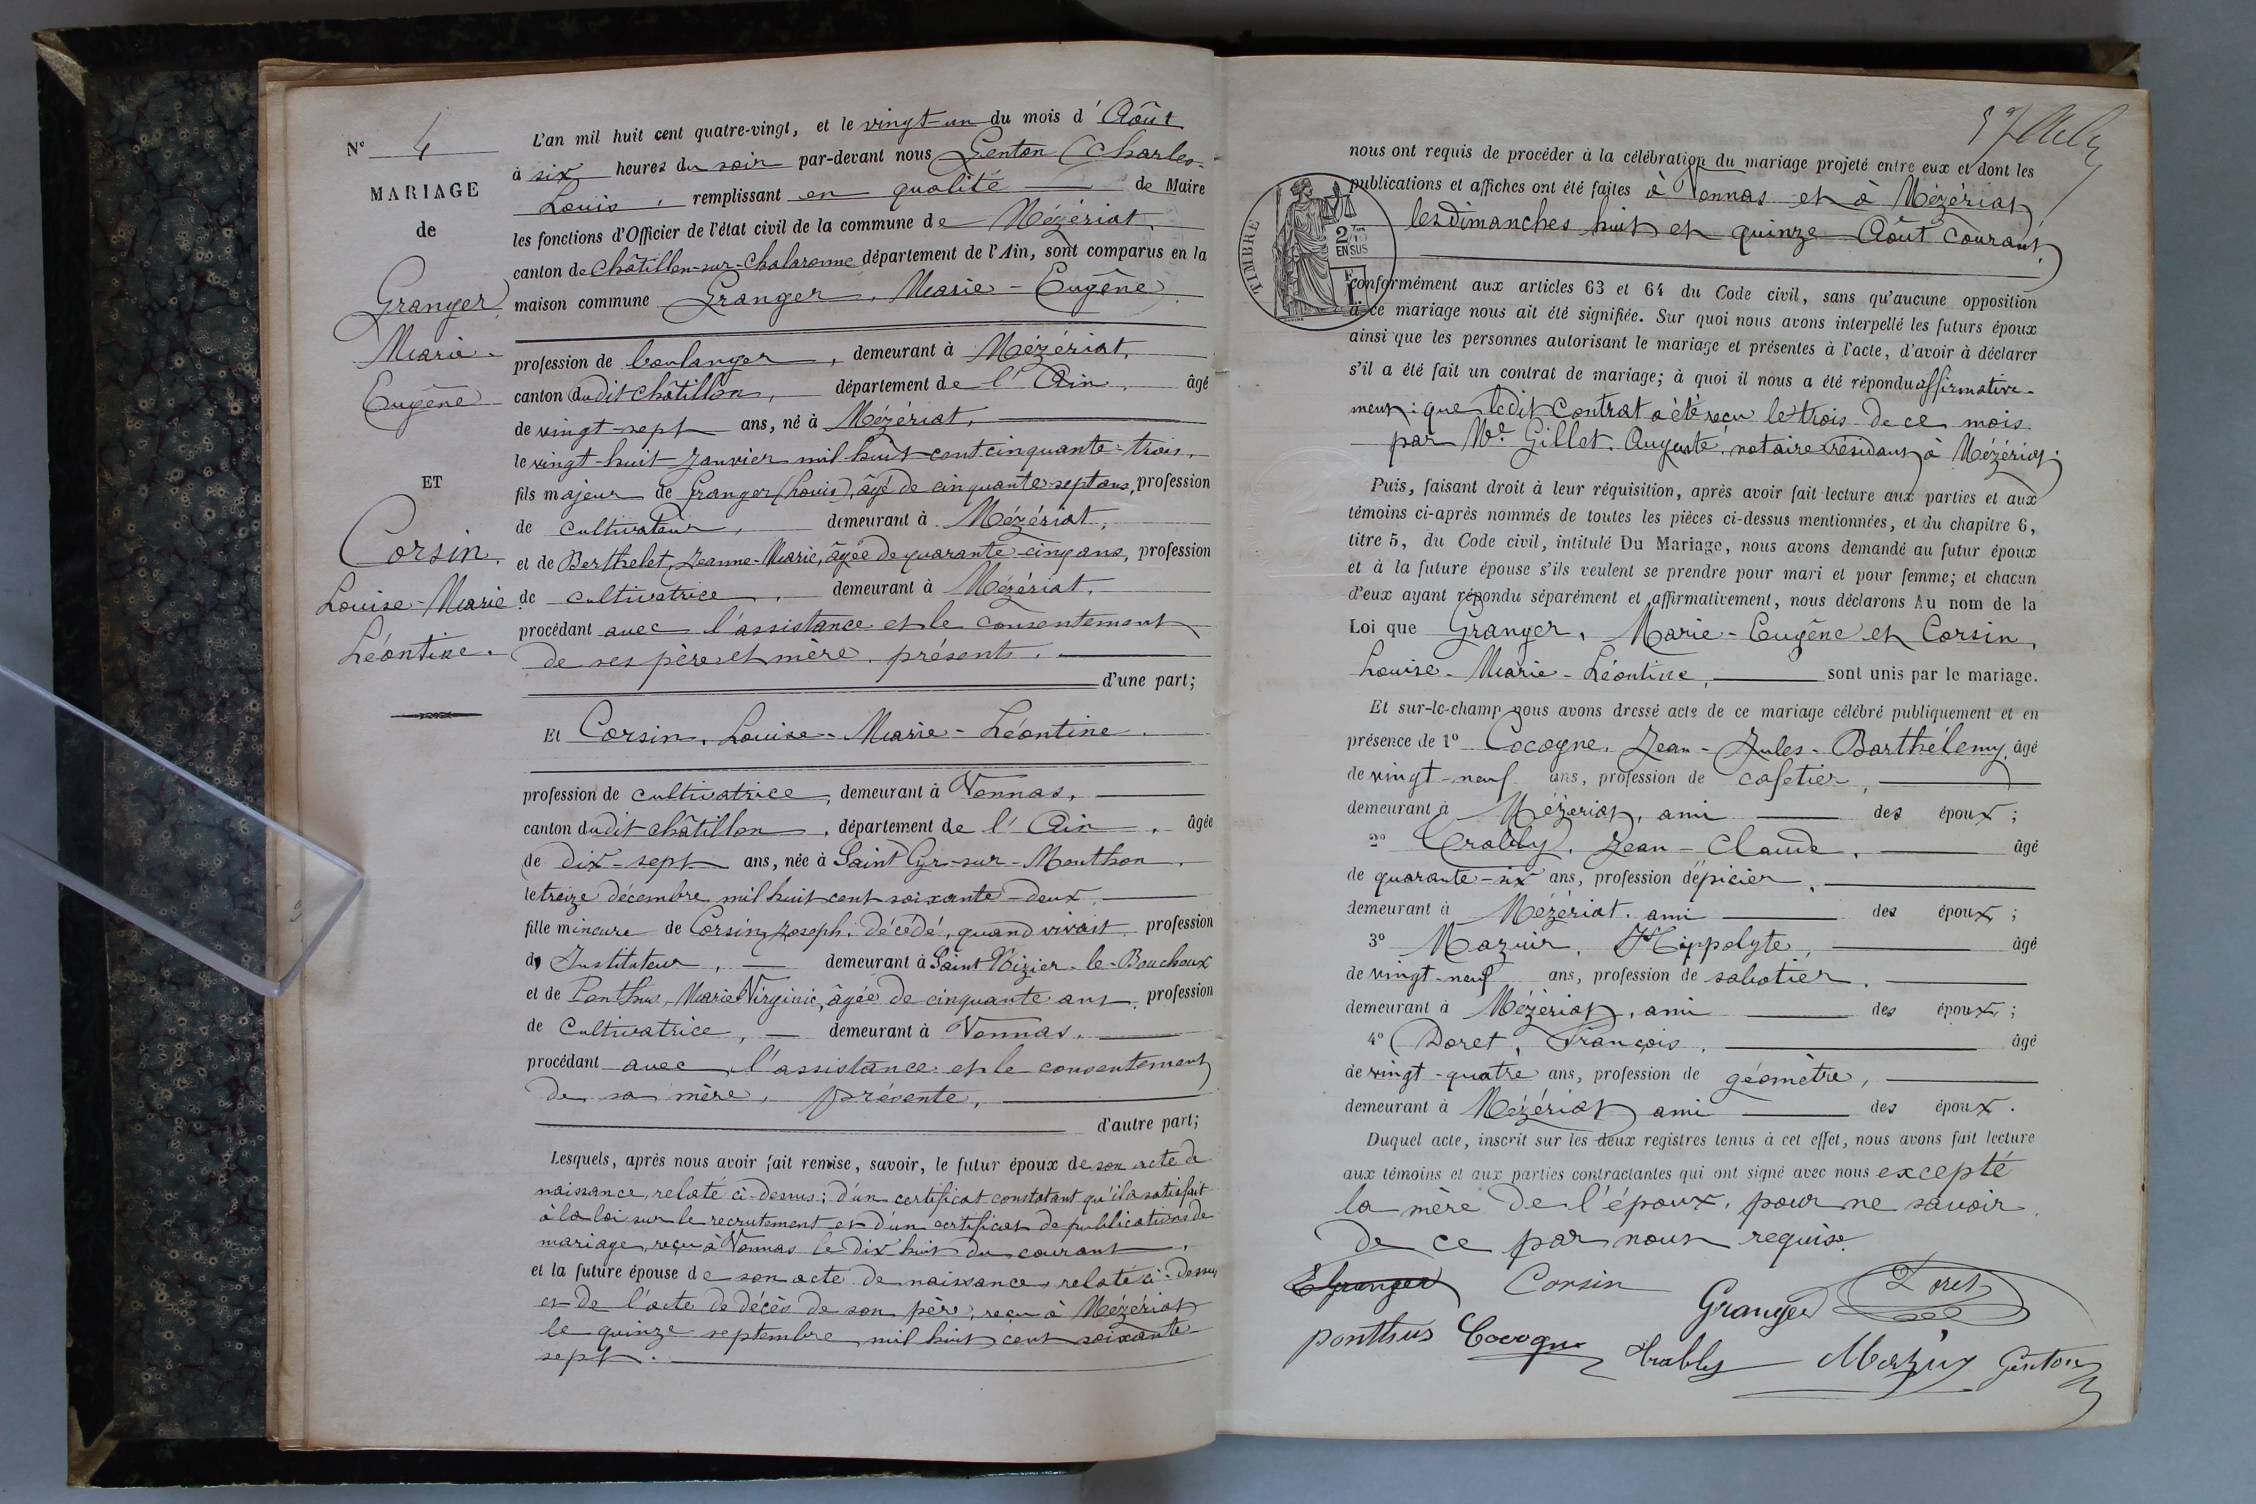 N° 4
MARIAGE
de
Granger
Marie-
Eugène
ET
Corsin,
Louise-Marie
Léontine.
L'an mil huit cent quatre-vingt, et le vingt-un du mois d'Août
à six heures du soir par-devant nous Genton (Charles-
Louis, remplissant en qualité de Maire
les fonctions d'Officier de l'état civil de la commune de Mézériat,
canton de Châtillon-sur-Chalaronne département de l'Ain, sont comparus en la
maison commune Granger, Marie-Eugène
profession de boulanger, demeurant à Mézériat,
canton dudit Châtillon, département de l'Ain, âgé
de vingt-sept ans, né à Mézériat,
le vingt-huit Janvier mil huit cent cinquante-trois,
fils majeur de Granger (Louis), âgé de cinquante-sept ans, profession
de cultivateur, demeurant à Mézériat,
et de Berthelet, Jeanne-Marie, âgée de quarante-cinq ans, profession
de cultivatrice, demeurant à Mézériat,
procédant avec l'assistance et le consentement
de ses père et mère, présents.
d'une part;
Et Corsin, Louise-Marie-Léontine.
profession de cultivatrice, demeurant à Vonnas,
canton dudit Châtillon, département de l'Ain, âgée
de dix-sept ans, née à Saint Cyr-sur-Menthon,
le treize décembre mil huit cent soixante-deux,
fille mineure de Corsin, Joseph, décédé, quand vivait profession
d' Instituteur, demeurant à Saint Nizier-le-Bouchoux
et de Ponthus, Marie Virginie, âgée de cinquante ans, profession
de Cultivatrice, demeurant à Vonnas,
procédant avec l'assistance et le consentement
de sa mère, présente,
d'autre part;
Lesquels, après nous avoir fait remise, savoir, le futur époux de son acte de
naissance, relaté ci-dessus; d'un certificat constatant qu'il a satisfait
à la loi sur le recrutement et d'un certificat de publications de
mariage, reçu à Vonnas le dix huit du courant,
et la future épouse de son acte de naissance, relaté ci-dessus
et de l'acte de décès de son père, reçu à Mézériat
le quinze septembre mil huit cent soixante-
sept.
TIMBRE
EN SUS
nous ont requis de procéder à la célébration du mariage projeté entre eux et dont les
publications et affiches ont été faites à Vonnas et à Mézériat,
les dimanches huit et quinze Août courant,
conformément aux articles 63 et 64 du Code civil, sans qu'aucune opposition
à ce mariage nous ait été signifiée. Sur quoi nous avons interpellé les futurs époux
ainsi que les personnes autorisant le mariage et présentes à l'acte, d'avoir à déclarer
s'il a été fait un contrat de mariage; à quoi il nous a été répondu affirmative-
ment: que ledit contrat a été reçu le trois de ce mois
par Me Gillet, Auguste, notaire résidant à Mézériat.
Puis, faisant droit à leur réquisition, après avoir fait lecture aux parties et aux
témoins ci-après nommés de toutes les pièces ci-dessus mentionnées, et du chapitre 6,
titre 5, du Code civil, intitulé Du Mariage, nous avons demandé au futur époux
et à la future épouse s'ils veulent se prendre pour mari et pour femme; et chacun
d'eux ayant répondu séparément et affirmativement, nous déclarons Au nom de la
Loi que Granger, Marie-Eugène et Corsin,
Louise-Marie-Léontine, sont unis par le mariage.
Et sur-le-champ nous avons dressé acte de ce mariage célébré publiquement et en
présence de 1° Cocogne, Jean-Jules-Barthélemy, âgé
de vingt-neuf ans, profession de cafetier,
demeurant à Mézériat, ami des époux;
2° Crably, Jean-Claude, âgé
de quarante-six ans, profession d'épicier,
demeurant à Mézériat, ami des époux;
3° Mazuir, Hippolyte, âgé
de vingt-neuf ans, profession de sabotier,
demeurant à Mézériat, ami des époux;
4° Doret, François, âgé
de vingt-quatre ans, profession de géomètre,
demeurant à Mézériat ami des époux.
Duquel acte, inscrit sur les deux registres tenus à cet effet, nous avons fait lecture
aux témoins et aux parties contractantes qui ont signé avec nous excepté
la mère de l'époux, pour ne savoir
de ce par nous requise.
E Granger Corsin Granger Doret
Ponthus Cocogne Crably Mazuy Genton